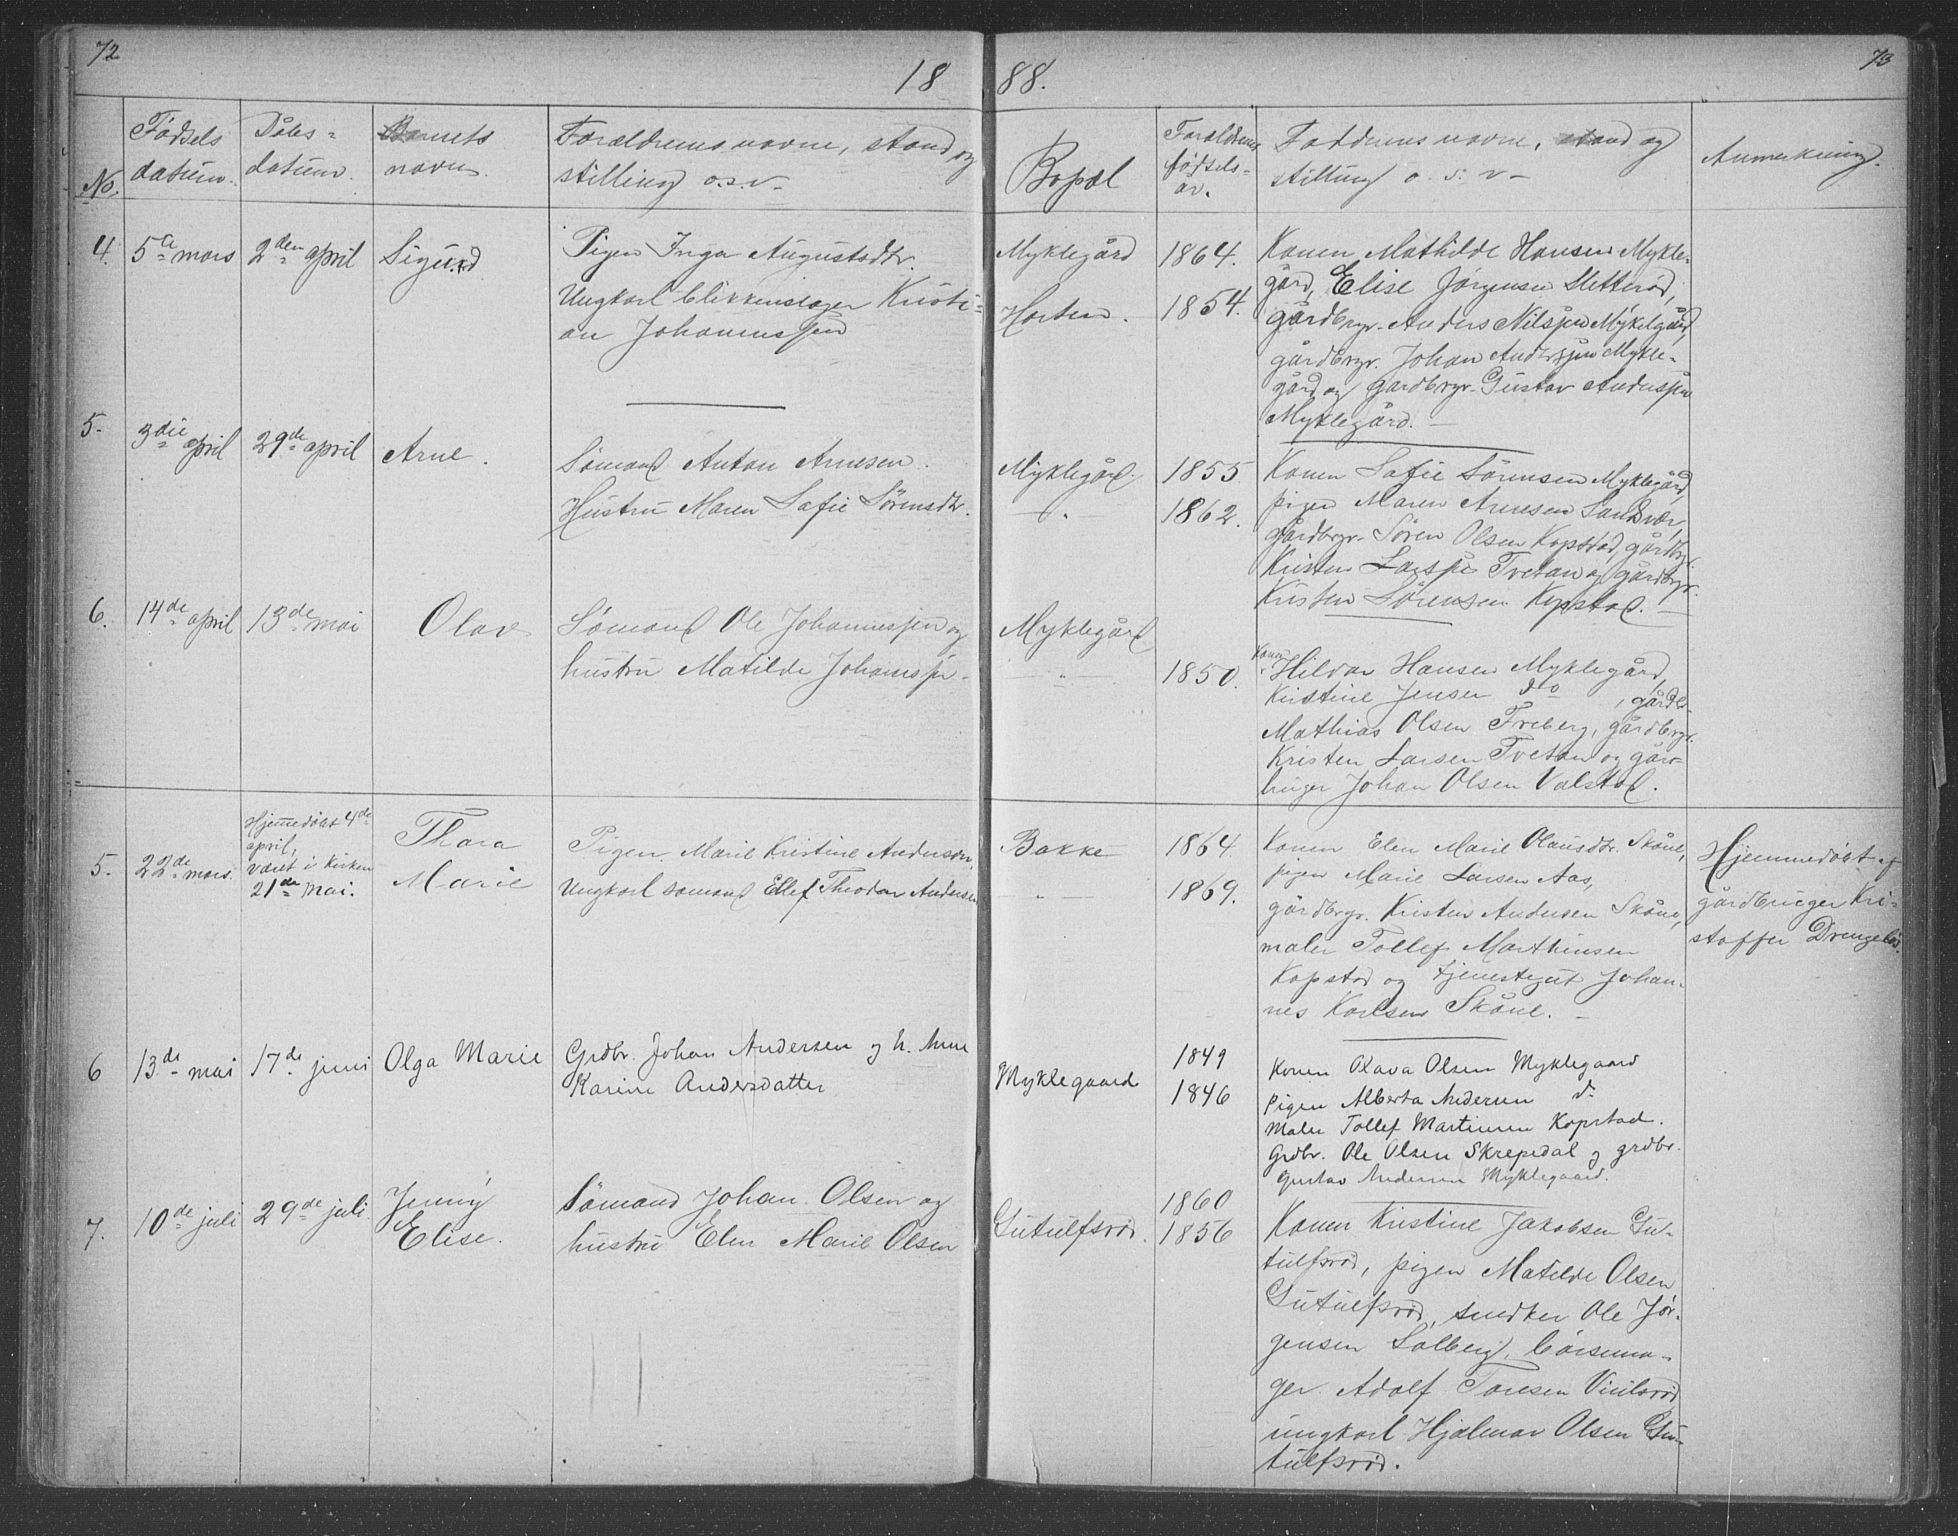 72
18
88.
73
No.
Fødsels
datum.
Dåbs-
datum.
Barnets
navn.
Forældrenes navne, stand og
stilling o.s.v.
Bopæl
Forældrenes
fødsels-
år.
Faddernes navne, stand og
stilling o. s. v.
Anmerkning.
4. 5te mars 2den april Sigurd
Pigen Inga Augustsdtr.
Ungkarl blikkenslager Kristi-
an Johannessen
Myklegård
Horten.
1864.
1854.
Konen Mathilde Hansen Mykle-
gård, Elise Jørgensen Sletterød,
gårdbrgr. Anders Nilsen Myklegård,
gårdbrgr. Johan Andersen Mykle-
gård og gardbrgr. Gustav Andersen
Myklegård.
5. 3die april 29de april Arne.
Sømand Anton Arnesen.
Hustru Maren Sofie Sørensdtr.
Myklegård.
"
1855
1862.
Konen Sofie Sørensen Myklegård
pigen Maren Arnesen Sandvær,
gårdbrgr. Søren Olsen Kopstad, gårdbrgr.
Kristen Larsen Tvetan og gårdbrgr.
Kristen Sørensen Kopstad.
6. 14de april 13de mai Olav
Sømand Ole Johannessen og
hustru Matilde Johanssen
Myklegård
"
1850.
Konen
Hilda Hansen Myklegård,
Kristine Jensen do, gårdb.
Mathias Olsen Freberg, gårdbrgr.
Kristen Larsen Tvetan og gård-
bruger Johan Olsen Valstad.
5. 22de mars
Hjemmedøbt 4de
april,
været i kirken
21de mai.
Thora
Marie
Pigen Marie Kristine Andersen,
Ungkarl sømand Ellef Theodor Andersen
Bakke
"
1864.
1869.
Konen Elen Marie Olausdtr. Skåne,
pigen Marie Larsen Aas,
gårdbrgr. Kristen Andersen Skåne,
maler Tollef Marthinsen
Kopstad og tjenestegut Johan-
nes Karlsen Skåne.
Hjemmedøbt af
gårdbruger Kri-
stoffer
6 13de mai 17de juni Olga Marie
Grdbr. Johan Andersen og h. Anne
Karine Andersdatter
Myklegaard
1849
1846
Konen Olava Olsen Myklegaard
Pigen Alberta Andersen do
Maler Tollef Martinsen Kopstad.
Grdbr. Ole Olsen Skrepedal og grdbr.
Gustav Andersen Myklegaard.
7. 10de juli 29de juli Jenny
Elise.
Sømand Johan Olsen og
hustru Elen Marie Olsen
Gutulfsrød.
1860
1856
Konen Kristine Jakobsen Gu-
tulfsrød, pigen Matilde Olsen
Gutulfsrød, snedker Ole Jør-
gensen Solberg, børsema-
ger Adolf Toresen
ungkarl Hjalmar Olsen Gu-
tulfsrød.